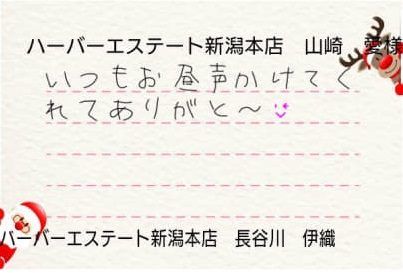 ハーバーエステート新潟本店　山崎　愛様
いつもお昼声かけてく
れてありがと〜
ハーバーエステート新潟本店　長谷川　伊織